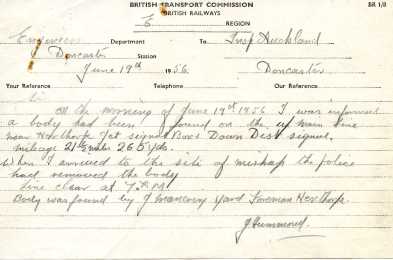 BRITISH TRANSPORT COMMISSION BR 1/8
BRITISH RAILWAYS
E REGION
Engineers Department To Insp Auckland
Doncaster Station
June 19th 1956 Doncaster
Your Reference Telephone Our Reference
On the morning of June 19th 1956 I was informed
a body had been found on the up main line
near Hexthorpe Jct signal Box's Down Dist signal.
mileage 265 yds.
When I arrived to the site of mishap the police
had removed the body
Line clear at 7.
Body was found by J yard foreman Hexthorpe
J Hummond.